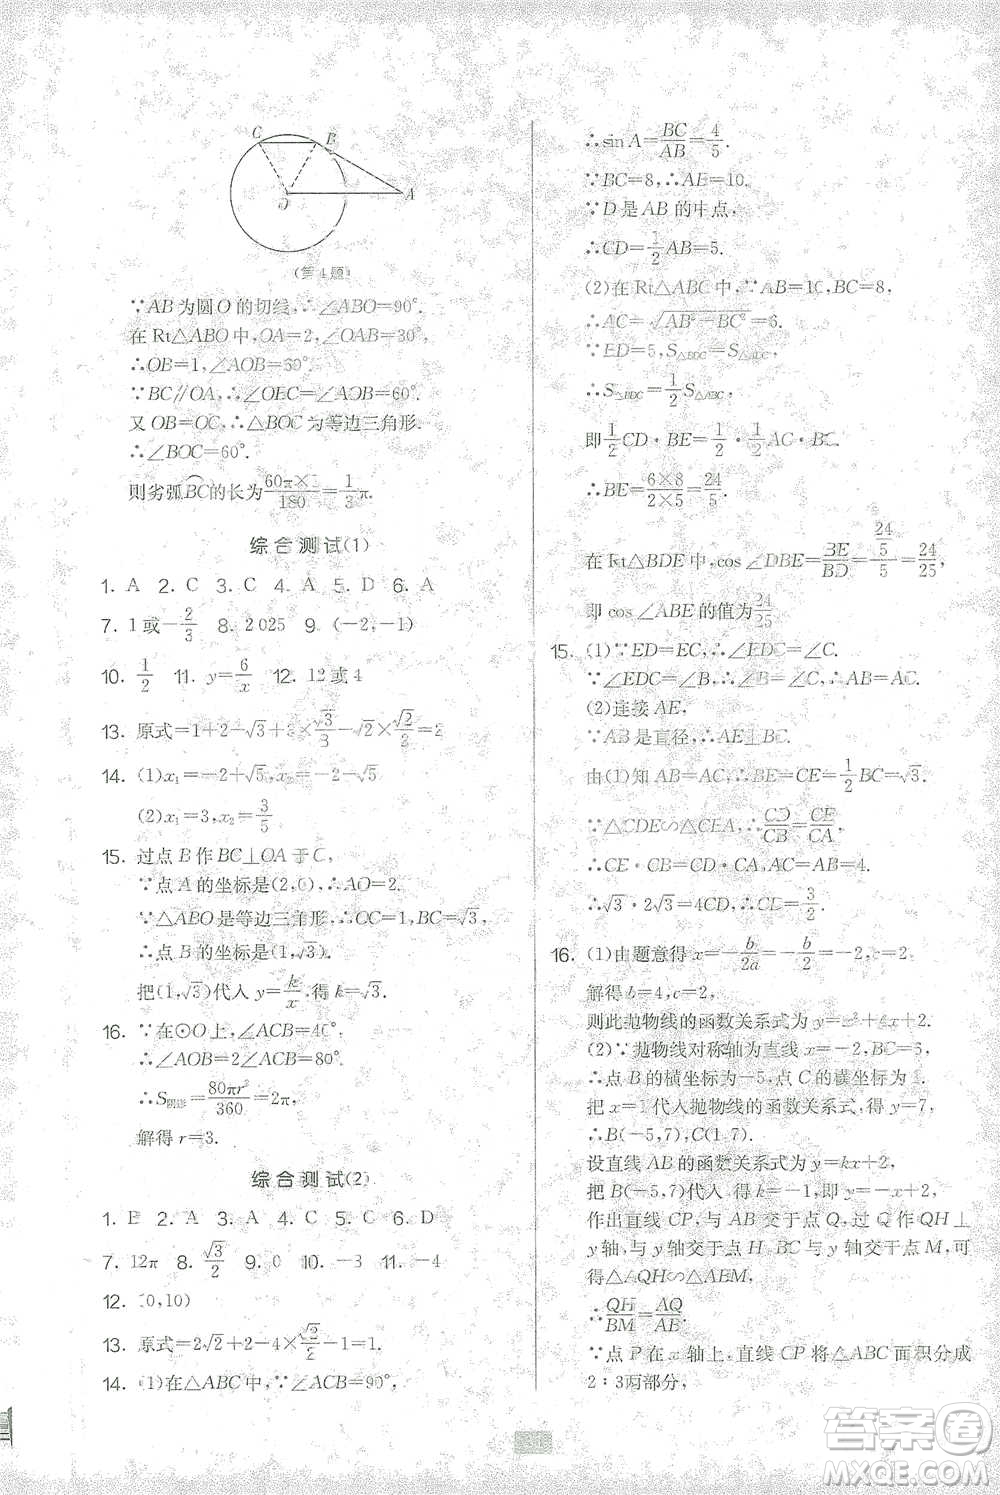 C B
O A
(第4题)
∵AB为圆O的切线,∴∠ABO=90°.
在Rt△ABO中,OA=2,∠OAB=30°,
∴OB=1,∠AOB=60°.
∵BC∥OA,∴∠OBC=∠AOB=60°.
又OB=OC,∴△BOC为等边三角形.
∴∠BOC=60°.
则劣弧BC的长为60π×1/180=1/3π.
综合测试(1)
1. A 2. C 3. C 4. A 5. D 6. A
7. 1或-2/3 8. 2025 9. (-2,-1)
10. 1/2 11. y=6/x 12. 12或4
13. 原式=1+2-√3+3×√3/3-√2×√2/2=2
14. (1)x₁=-2+√5,x₂=-2-√5
(2)x₁=3,x₂=3/5
15. 过点B作BC⊥OA于C,
∵点A的坐标是(2,0),∴AO=2.
∵△ABO是等边三角形,∴OC=1,BC=√3,
∴点B的坐标是(1,√3).
把(1,√3)代入y=k/x,得k=√3.
16. ∵在⊙O上,∠ACB=40°,
∴∠AOB=2∠ACB=80°.
∴S阴影=80πr²/360=2π,
解得r=3.
综合测试(2)
1. B 2. A 3. A 4. C 5. C 6. D
7. 12π 8. √3/2 9. 0 10. -3 11. -4
12. (0,10)
13. 原式=2√2+2-4×√2/2-1=1.
14. (1)在△ABC中,∵∠ACB=90°,
∴sin A=BC/AB=4/5.
∵BC=8,∴AB=10.
∵D是AB的中点,
∴CD=1/2AB=5.
(2)在Rt△ABC中,∵AB=10,BC=8,
∴AC=√(AB²-BC²)=6.
∵BD=5,S△BDC=S△ADC,
∴S△BDC=1/2S△ABC,
即1/2CD·BE=1/2·1/2AC·BC.
∴BE=6×8/2×5=24/5.
在Rt△BDE中,cos∠DBE=BE/BD=24/5/5=24/25,
即cos∠ABE的值为24/25.
15. (1)∵ED=EC,∴∠EDC=∠C.
∵∠EDC=∠B,∴∠B=∠C,∴AB=AC.
(2)连接AE,
∵AB是直径,∴AE⊥BC.
由(1)知AB=AC,∴BE=CE=1/2BC=√3.
∵△CDE∽△CBA,∴CD/CB=CE/CA.
∴CE·CB=CD·CA,AC=AB=4.
∴√3·2√3=4CD,∴CD=3/2.
16. (1)由题意得x=-b/2a=-b/2=-2,c=2.
解得b=4,c=2,
则此抛物线的函数关系式为y=x²+4x+2.
(2)∵抛物线对称轴为直线x=-2,BC=6,
∴点B的横坐标为-5,点C的横坐标为1.
把x=1代入抛物线的函数关系式,得y=7,
∴B(-5,7),C(1,7).
设直线AB的函数关系式为y=kx+2,
把B(-5,7)代入得k=-1,即y=-x+2,
作出直线CP,与AB交于点Q,过Q作QH⊥
y轴,与y轴交于点H,BC与y轴交于点M,可
得△AQH∽△ABM,
∴QH/BM=AQ/AB.
∵点P在x轴上,直线CP将△ABC面积分成
2∶3两部分,
答案圈
MXQE.COM